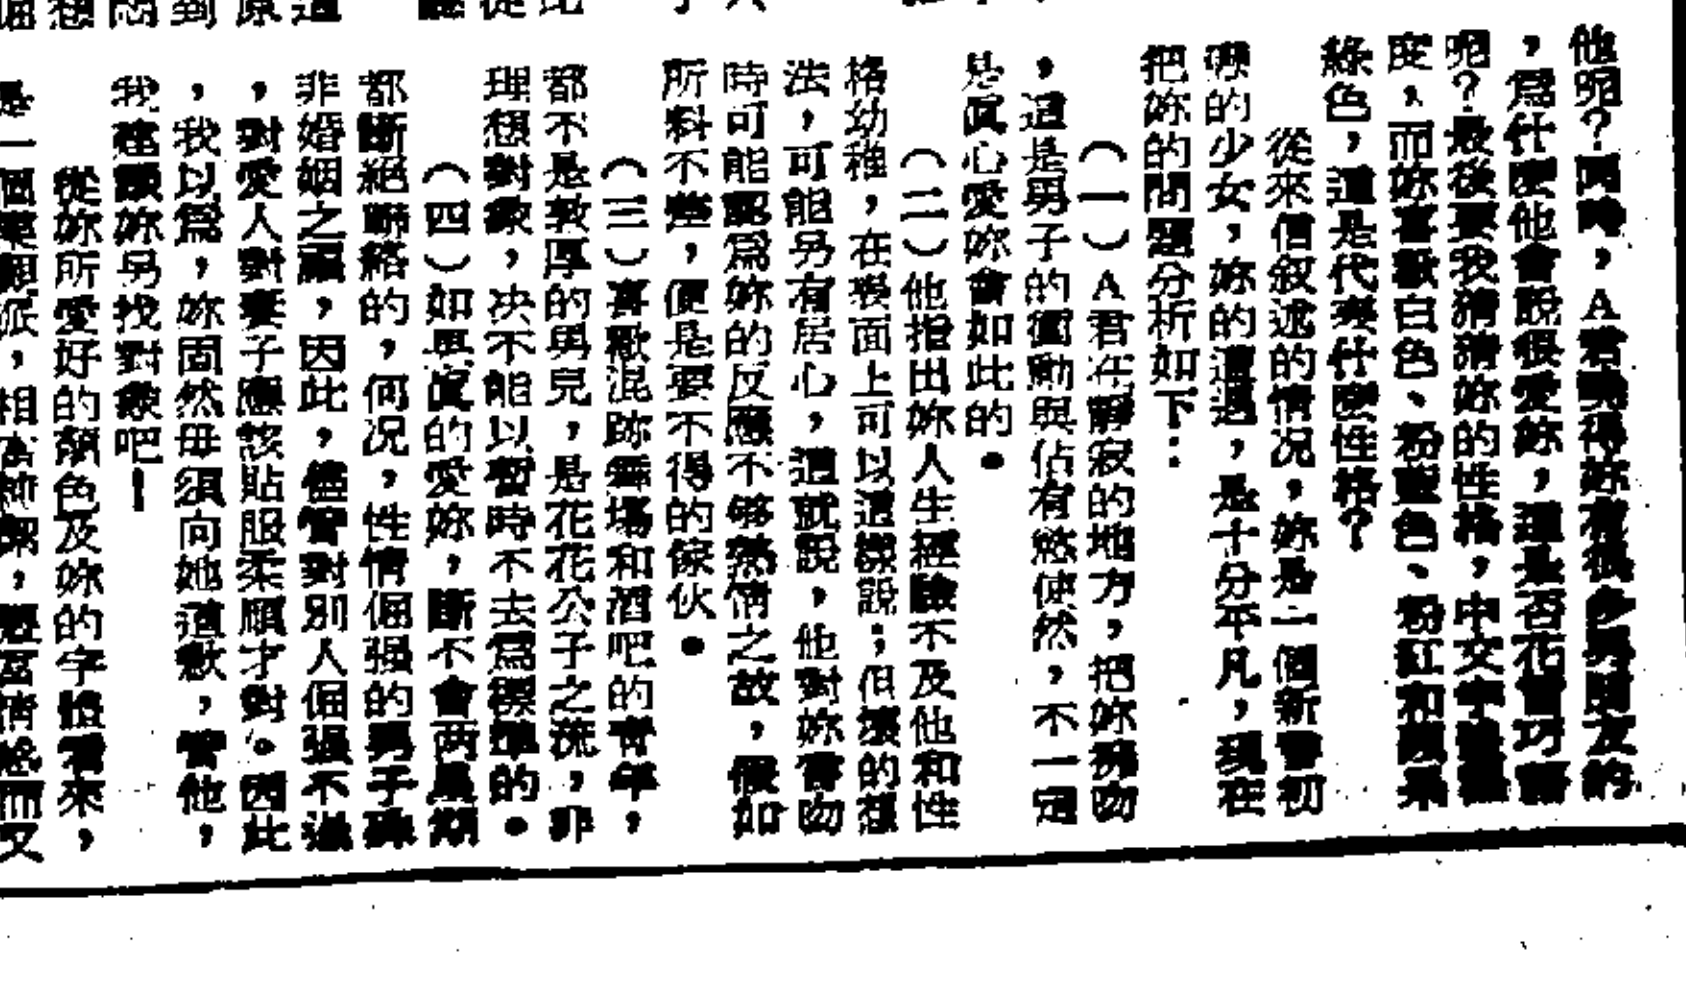 他呢?同時,A君曉得妳有很多男朋友的
,爲什麼他會說很愛妳,還是否花言巧語
呢?最後要我猜猜妳的性格,中文字
度,而妳喜歡白色、粉藍色、粉紅和
綠色,這是代表什麼性格?
從來信叙述的情况,妳是一個新書初
的少女,妳的遭遇,是十分平凡,現在
把妳的問題分析如下:
(一)A君在靜寂的地方,把妳擁吻
,這是男子的衝動與佔有慾使然,不一定
是眞心愛妳會如此的。
(二)他指出妳人生經驗不及他和性
格幼稚,在表面上可以這樣說;但壞的想
法,可能另有居心,這就說,他對妳嘗吻
時可能認爲妳的反應不够熱情之故,假如
所料不差,便是要不得的傢伙。
(三)喜歡混跡舞塲和酒吧的青年,
都不是敦厚的男兒,是花花公子之流,非
理想對象,决不能以暫時不去爲標準的。
(四)如果眞的愛妳,斷不會两星期
都斷絕聯絡的,何况,性情倔强的男子
非婚姻之福,因此,儘管對別人倔强不
,對愛人對妻子應該貼服柔順才對。因此
,我以爲,妳固然毋須向她道歉,管他,
我建議妳另找對象吧!
從妳所愛好的顏色及妳的字體看來,
是一個樂觀派,相當純潔,豐富情感而又